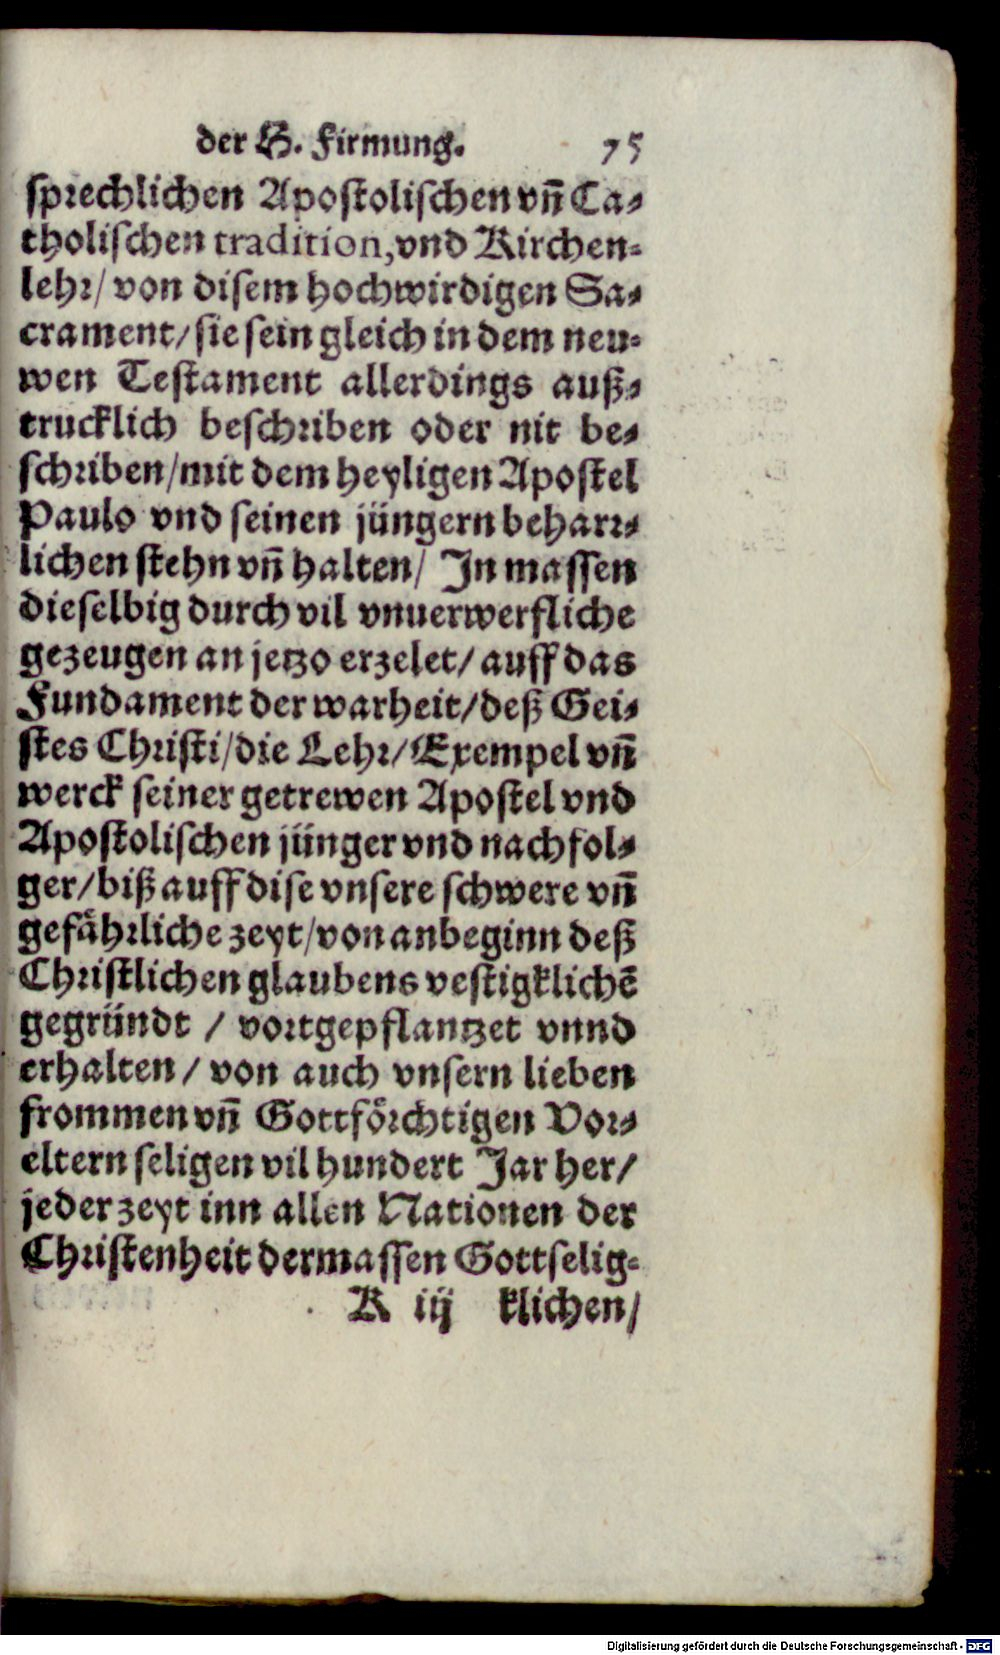 der H. Firmung. 75
sprechlichen Apostolischen vñ Ca⸗
tholischen tradition, vnd Kirchen⸗
lehr/ von disem hochwirdigen Sa⸗
crament/ sie sein gleich in dem neu⸗
wen Testament allerdings auß⸗
trucklich beschriben oder nit be⸗
schriben/ mit dem heyligen Apostel
Paulo vnd seinen jüngern beharr⸗
lichen stehn vñ halten/ In massen
dieselbig durch vil vnuerwerfliche
gezeugen an jetzo erzelet/ auff das
Fundament der warheit/ deß Gei⸗
stes Christi/ die Lehr/ Exempel vñ
werck seiner getrewen Apostel vnd
Apostolischen jünger vnd nachfol⸗
ger/ biß auff dise vnsere schwere vñ
gefährliche zeyt/ von anbeginn deß
Christlichen glaubens vestigklichẽ
gegründt / vortgepflantzet vnnd
erhalten/ von auch vnsern lieben
frommen vñ Gottförchtigen Vor⸗
eltern seligen vil hundert Jar her/
jeder zeyt inn allen Nationen der
Christenheit dermassen Gottselig⸗
K iij klichen/
Digitalisierung gefördert durch die Deutsche Forschungsgemeinschaft - DFG